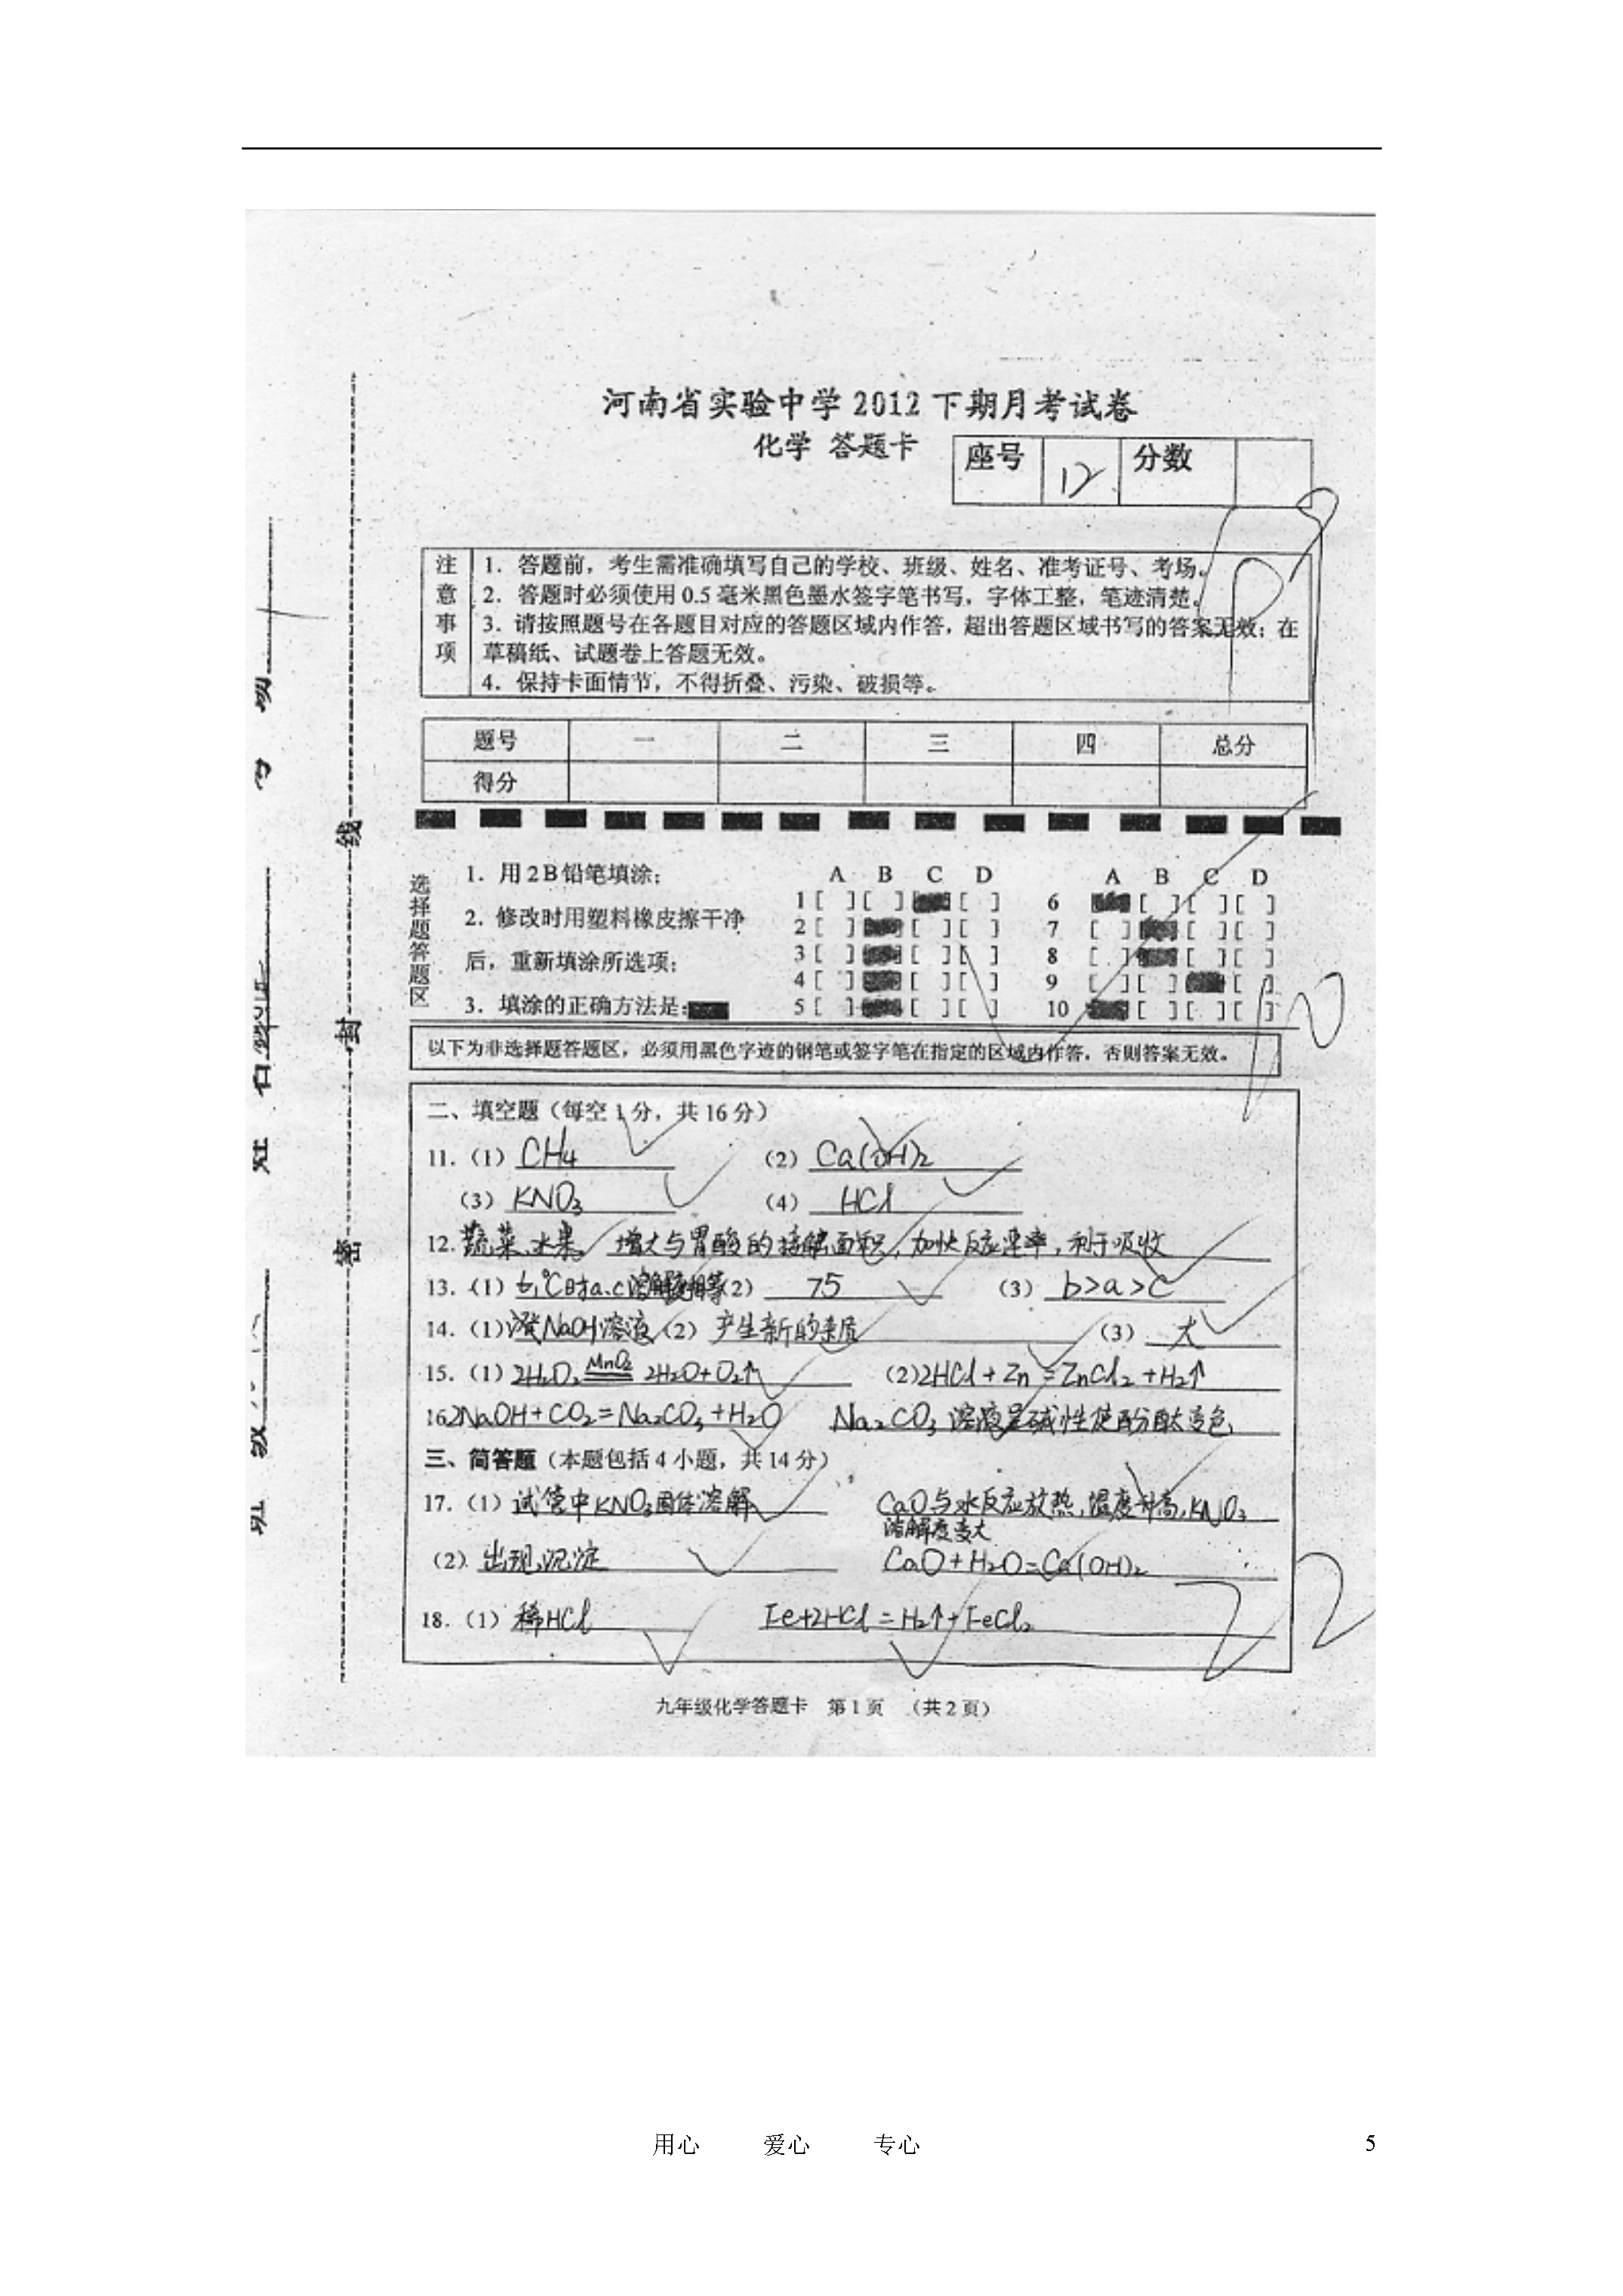 河南省实验中学2012下期月考试卷
化学 答题卡
座号 12 分数
注意事项
1．答题前，考生需准确填写自己的学校、班级、姓名、准考证号、考场。
2．答题时必须使用0.5毫米黑色墨水签字笔书写，字体工整，笔迹清楚。
3．请按照题号在各题目对应的答题区域内作答，超出答题区域书写的答案无效；在
草稿纸、试题卷上答题无效。
4．保持卡面情节，不得折叠、污染、破损等。
题号 一 二 三 四 总分
得分
选择题答题区
1．用2B铅笔填涂；
2．修改时用塑料橡皮擦干净
后，重新填涂所选项；
3．填涂的正确方法是：
A B C D A B C D
1 [ ] [ ] [ ] 6 [ ] [ ] [ ]
2 [ ] [ ] [ ] 7 [ ] [ ] [ ]
3 [ ] [ ] [ ] 8 [ ] [ ] [ ]
4 [ ] [ ] [ ] 9 [ ] [ ] [ ]
5 [ ] [ ] [ ] 10 [ ] [ ] [ ]
10
以下为非选择题答题区，必须用黑色字迹的钢笔或签字笔在指定的区域内作答，否则答案无效。
二、填空题（每空1分，共16分）
11．（1）CH4 （2）Ca(OH)2
（3）KNO3 （4）HCl
12．蔬菜、水果 增大与胃酸的接触面积，加快反应速率，利于吸收
13．（1）t1℃时a、c溶解度相等（2）75 （3）b>a>c
14．（1）NaOH溶液（2）产生新的杂质 （3）大
15．（1）2H2O2 MnO2 2H2O+O2↑ （2）2HCl+Zn=ZnCl2+H2↑
16 2NaOH+CO2=Na2CO3+H2O Na2CO3溶液呈碱性使酚酞变色
三、简答题（本题包括4小题，共14分）
17．（1）试管中KNO3固体溶解 CaO与水反应放热，温度升高，KNO3
溶解度变大
（2）出现沉淀 CaO+H2O=Ca(OH)2
18．（1）稀HCl Fe+2HCl=H2↑+FeCl2
22
九年级化学答题卡 第1页 （共2页）
密 封 线
班级 姓名 考场
用心 爱心 专心 5